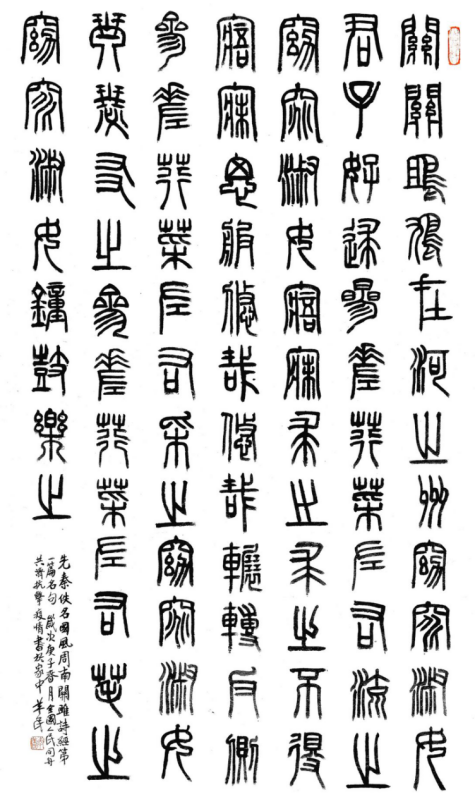 關關雎鳩在河之州窈窕淑女
君子好逑參差荇菜左右流之
窈窕淑女寤寐求之求之不得
寤寐思服悠哉悠哉輾轉反側
參差荇菜左右采之窈窕淑女
琴瑟友之參差荇菜左右芼之
窈窕淑女鐘鼓樂之
先秦佚名國風周南關雎詩經第
一篇名句 歲次庚子春月全國人民同舟
共濟抗擊疫情書於家中